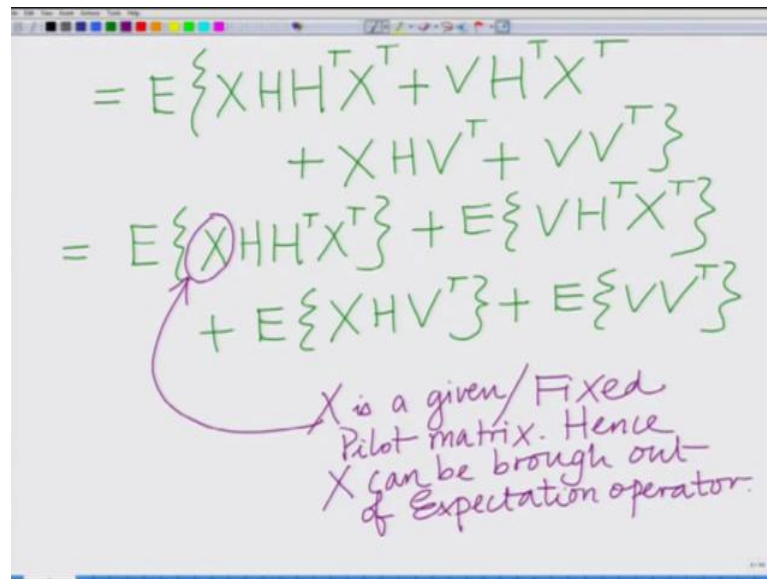 = E{XHHᵀXᵀ + VHᵀXᵀ
+ XHVᵀ + VVᵀ}
= E{XHHᵀXᵀ} + E{VHᵀXᵀ}
+ E{XHVᵀ} + E{VVᵀ}
X is a given/Fixed
Pilot matrix. Hence
X can be brough out
of Expectation operator.